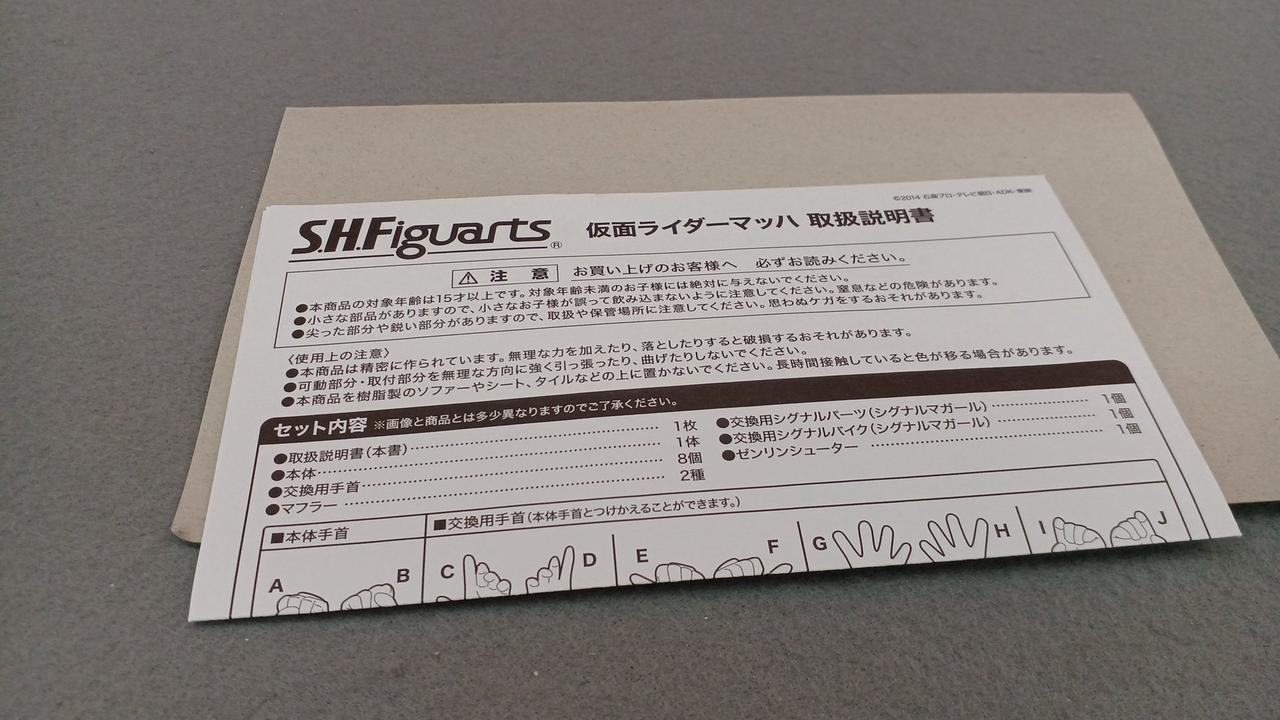 ©2014 石森プロ・テレビ朝日・ADK・東映
S.H.Figuarts® 仮面ライダーマッハ 取扱説明書
⚠ 注 意 お買い上げのお客様へ 必ずお読みください。
●本商品の対象年齢は15才以上です。対象年齢未満のお子様には絶対に与えないでください。
●小さな部品がありますので、小さなお子様が誤って飲み込まないように注意してください。窒息などの危険があります。
●尖った部分や鋭い部分がありますので、取扱や保管場所に注意してください。思わぬケガをするおそれがあります。
〈使用上の注意〉
●本商品は精密に作られています。無理な力を加えたり、落としたりすると破損するおそれがあります。
●可動部分・取付部分を無理な方向に強く引っ張ったり、曲げたりしないでください。
●本商品を樹脂製のソファーやシート、タイルなどの上に置かないでください。長時間接触していると色が移る場合があります。
セット内容 ※画像と商品とは多少異なりますのでご了承ください。
●取扱説明書(本書) 1枚
●本体 1体
●交換用手首 8個
●マフラー 2種
●交換用シグナルパーツ(シグナルマガール) 1個
●交換用シグナルバイク(シグナルマガール) 1個
●ゼンリンシューター 1個
■本体手首
■交換用手首(本体手首とつけかえることができます。)
A B C D E F G H I J